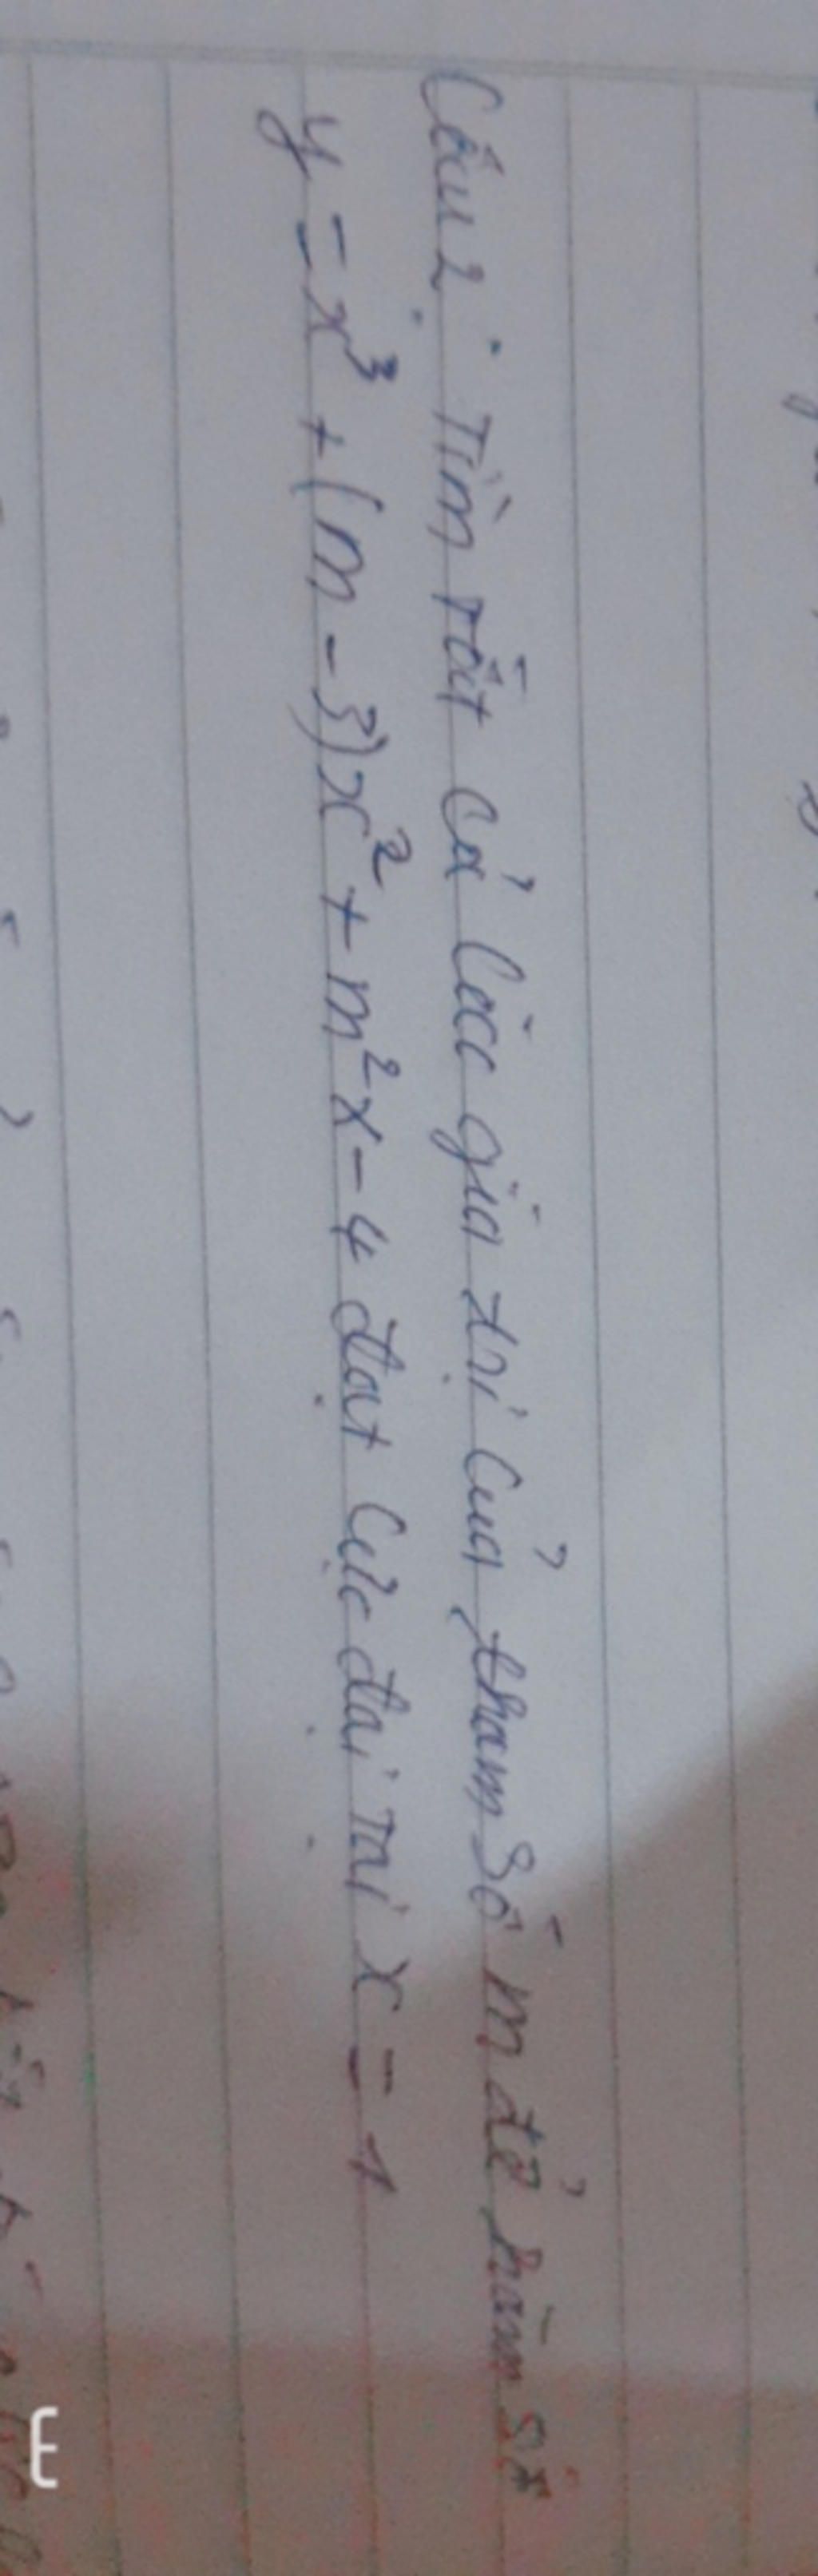 Câu 2: Tìm tất cả các giá trị của tham số m để hàm số
y = x³ + (m - 3)x² + m²x - 4 đạt cực đại tại x = 1
E